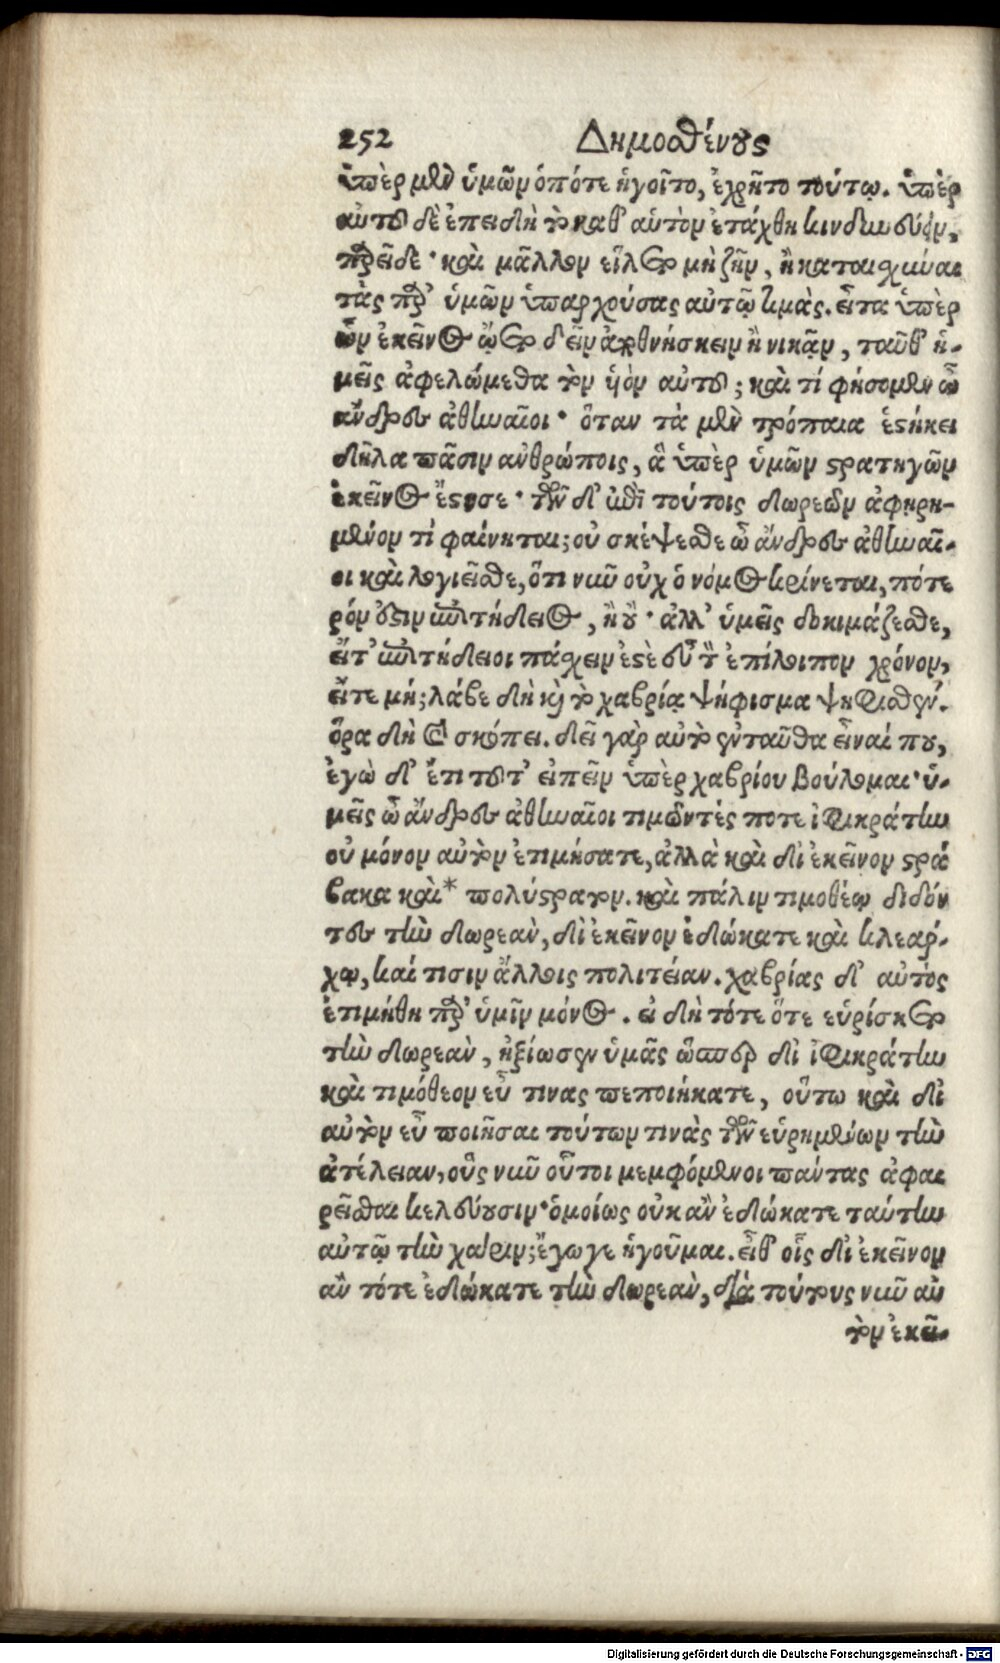 252 Δημοσθένους
ὑπὲρ μὲν ὑμῶν ὁπότε ἡγοῖτο, ἐχρῆτο τούτῳ. ὑπὲρ
αὑτοῦ δὲ ἐπειδὴ τὸ καθ' αὑτὸν ἐτάχθη κινδυνεύειν,
παρεῖδε· καὶ μᾶλλον εἵλετο μὴ ζῆν, ἢ καταισχύναι
τὰς παρ' ὑμῶν ὑπαρχούσας αὐτῷ τιμάς. εἶτα ὑπὲρ
ὧν ἐκεῖνος ᾤετο δεῖν ἀποθνήσκειν ἢ νικᾷν, ταῦθ' ἡ-
μεῖς ἀφελώμεθα τὸν υἱὸν αὐτοῦ; καὶ τί φήσομεν ὦ
ἄνδρες ἀθηναῖοι· ὅταν τὰ μὲν τρόπαια ἑστήκει
δῆλα πᾶσιν ἀνθρώποις, ἃ ὑπὲρ ὑμῶν στρατηγῶν
ἐκεῖνος ἔστησε· τῶν δ' ἐπὶ τούτοις δωρεῶν ἀφῃρη-
μένον τί φαίνηται; οὐ σκέψεσθε ὦ ἄνδρες ἀθηναῖ-
οι καὶ λογιεῖσθε, ὅτι νῦν οὐχ ὁ νόμος κρίνεται, πότε
ρόν ἐστιν ἐπιτήδειος, ἢ οὔ· ἀλλ' ὑμεῖς δοκιμάζεσθε,
εἴτ' ἐπιτήδειοι πάσχειν ἐστὲ εὖ τὸν ἐπίλοιπον χρόνον,
εἴτε μή; λάβε δὴ καὶ τὸ χαβρίᾳ ψήφισμα ψηφισθέν.
ὅρα δὴ καὶ σκόπει. δεῖ γὰρ αὐτὸ ἐνταῦθα εἶναί που,
ἐγὼ δ' ἔτι τοῦτ' εἰπεῖν ὑπὲρ χαβρίου βούλομαι· ὑ-
μεῖς ὦ ἄνδρες ἀθηναῖοι τιμῶντές ποτε ἰφικράτην
οὐ μόνον αὐτὸν ἐτιμήσατε, ἀλλὰ καὶ δι' ἐκεῖνον στρά
βακα καὶ* πολύστρατον. καὶ πάλιν τιμοθέῳ διδόν
τες τὴν δωρεὰν, δι' ἐκεῖνον ἐδώκατε καὶ κλεάρ-
χῳ, καί τισιν ἄλλοις πολιτείαν. χαβρίας δ' αὐτὸς
ἐτιμήθη παρ' ὑμῖν μόνος. εἰ δὴ τότε ὅτε εὑρίσκετο
τὴν δωρεὰν, ἠξίωσεν ὑμᾶς ὥσπερ δι' ἰφικράτην
καὶ τιμόθεον εὖ τινας πεποιήκατε, οὕτω καὶ δι'
αὐτὸν εὖ ποιῆσαι τούτων τινὰς τῶν εὑρημένων τὴν
ἀτέλειαν, οὓς νῦν οὗτοι μεμφόμενοι πάντας ἀφαι
ρεῖσθαι κελεύουσιν· ὁμοίως οὐκ ἂν ἐδώκατε ταύτην
αὐτῷ τὴν χάριν; ἔγωγε ἡγοῦμαι. εἶθ' οἷς δι' ἐκεῖνον
ἂν τότε ἐδώκατε τὴν δωρεὰν, διὰ τούτους νῦν αὐ
τὸν ἐκεῖ-
Digitalisierung gefördert durch die Deutsche Forschungsgemeinschaft - DFG